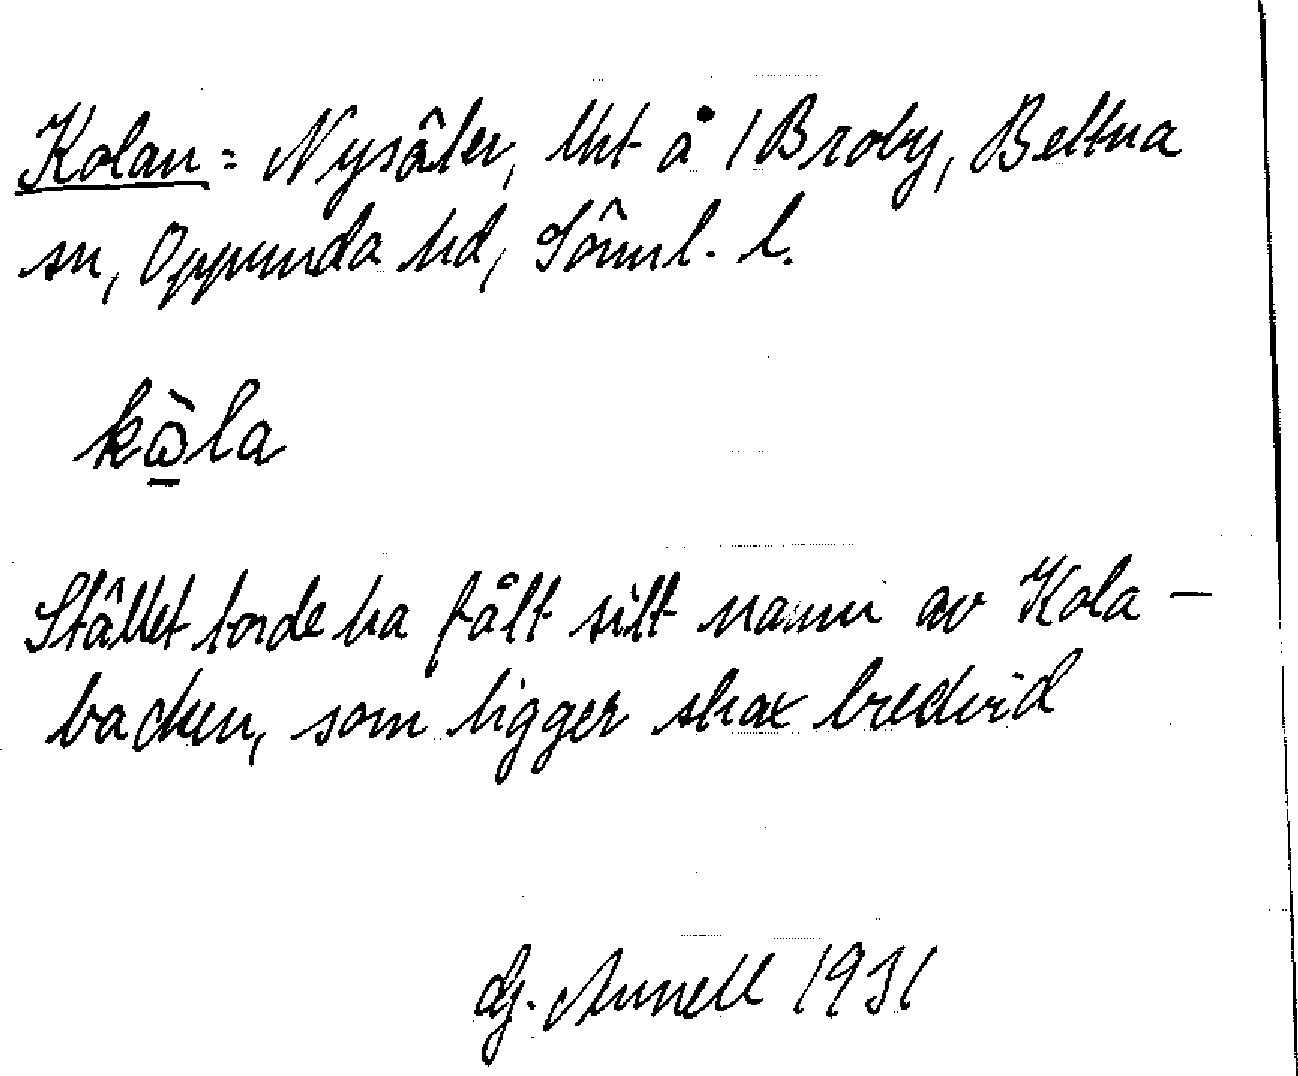 Kolan = Nysäter, lht å 1 Broby, Bettna
sn, Oppunda hd, Söml. l.
kὼla
Stället torde ha fått sitt namn av Kola-
backen, som ligger strax bredvid
G. Annell 1931